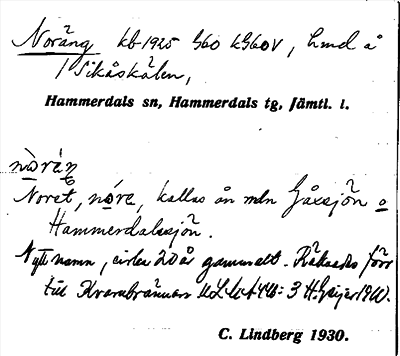 Noräng kb 1925 G60 kG60V, hmd å
Sikåskälen,
Hammerdals sn, Hammerdals tg, Jämtl. l.
Noret, nore, kallas ån mln Gåxsjön o
Hammerdalssjön.
Nytt namn, cirka 20 år gammalt. Räknades förr
till Kvarnbrännan
C. Lindberg 1930.